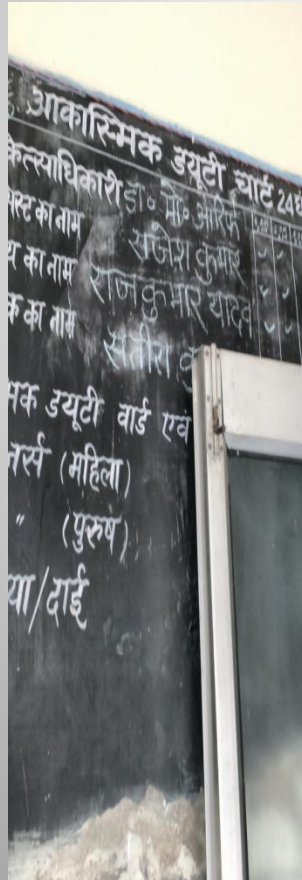 आकास्मिक ड्यूटी चार्ट 24
केत्साधिकारी डॉ० मो० आरिफ
स्ट का नाम राजेश कुमार
य का नाम राजकुमार यादव
क का नाम सतीश कु
मक ड्यूटी वार्ड एवं
नर्स (महिला)
" (पुरुष)
या/दाई